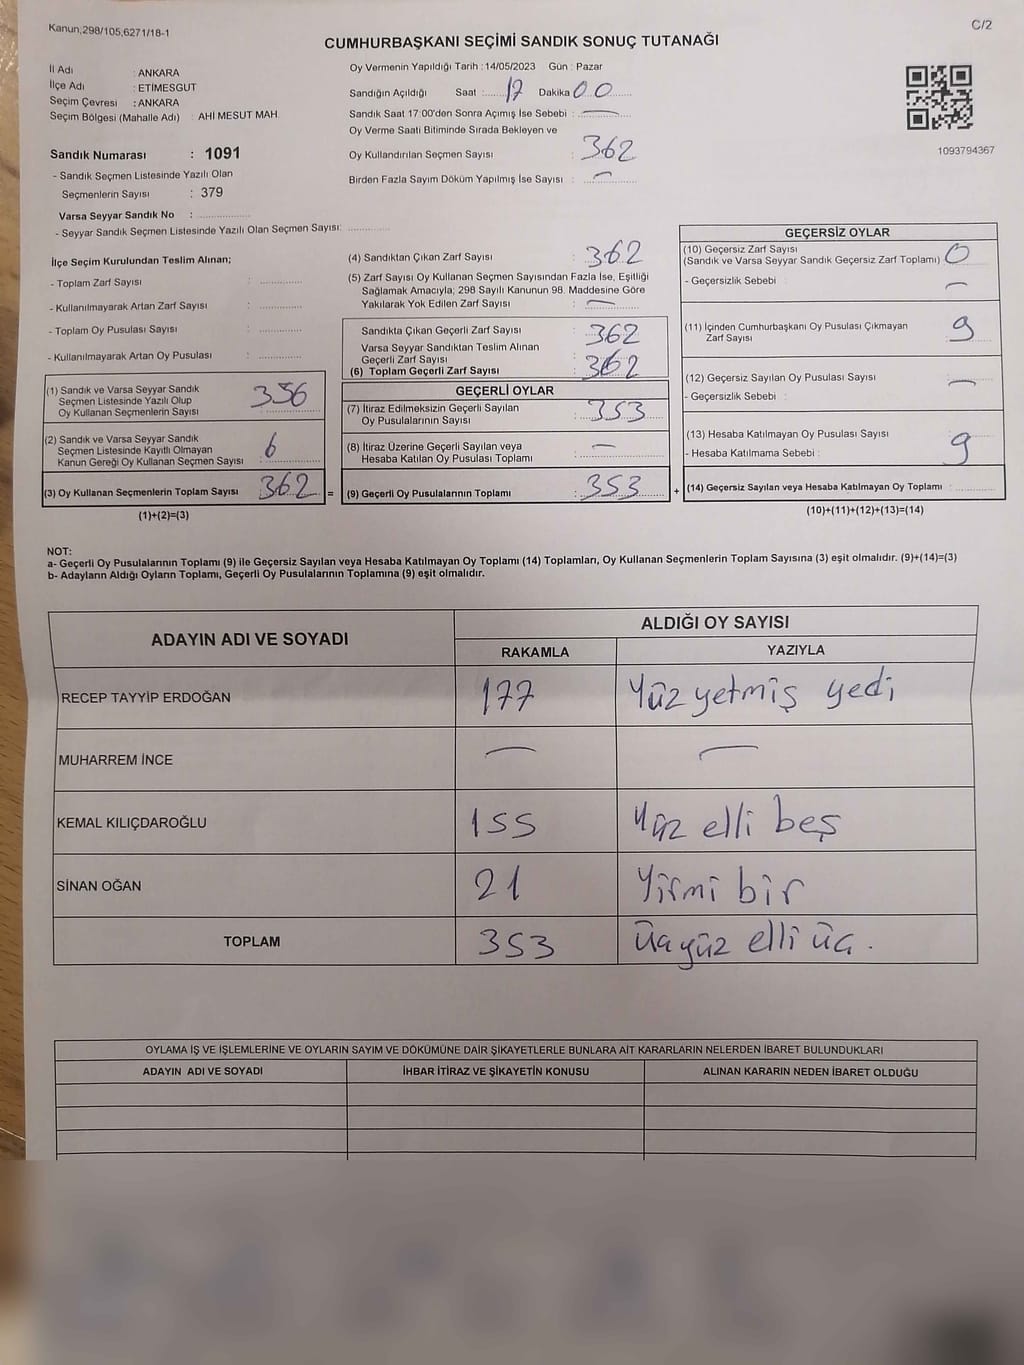 Kanun;298/105,6271/18-1
C/2
CUMHURBAŞKANI SEÇİMİ SANDIK SONUÇ TUTANAĞI
İl Adı : ANKARA
İlçe Adı : ETİMESGUT
Seçim Çevresi : ANKARA
Seçim Bölgesi (Mahalle Adı) : AHİ MESUT MAH.
Sandık Numarası : 1091
- Sandık Seçmen Listesinde Yazılı Olan
Seçmenlerin Sayısı : 379
Varsa Seyyar Sandık No :
- Seyyar Sandık Seçmen Listesinde Yazılı Olan Seçmen Sayısı:
Oy Vermenin Yapıldığı Tarih : 14/05/2023 Gün : Pazar
Sandığın Açıldığı Saat : 17 Dakika 00
Sandık Saat 17:00'den Sonra Açımış İse Sebebi : —
Oy Verme Saati Bitiminde Sırada Bekleyen ve
Oy Kullandırılan Seçmen Sayısı : 362
Birden Fazla Sayım Döküm Yapılmış İse Sayısı : —
1093794367
İlçe Seçim Kurulundan Teslim Alınan;
- Toplam Zarf Sayısı :
- Kullanılmayarak Artan Zarf Sayısı :
- Toplam Oy Pusulası Sayısı :
- Kullanılmayarak Artan Oy Pusulası :
(1) Sandık ve Varsa Seyyar Sandık
Seçmen Listesinde Yazılı Olup
Oy Kullanan Seçmenlerin Sayısı 356
(2) Sandık ve Varsa Seyyar Sandık
Seçmen Listesinde Kayıtlı Olmayan
Kanun Gereği Oy Kullanan Seçmen Sayısı 6
(3) Oy Kullanan Seçmenlerin Toplam Sayısı 362 =
(1)+(2)=(3)
(4) Sandıktan Çıkan Zarf Sayısı : 362
(5) Zarf Sayısı Oy Kullanan Seçmen Sayısından Fazla İse, Eşitliği
Sağlamak Amacıyla; 298 Sayılı Kanunun 98. Maddesine Göre
Yakılarak Yok Edilen Zarf Sayısı : —
Sandıkta Çıkan Geçerli Zarf Sayısı : 362
Varsa Seyyar Sandıktan Teslim Alınan
Geçerli Zarf Sayısı
(6) Toplam Geçerli Zarf Sayısı : 362
GEÇERLİ OYLAR
(7) İtiraz Edilmeksizin Geçerli Sayılan
Oy Pusulalarının Sayısı : 353
(8) İtiraz Üzerine Geçerli Sayılan veya
Hesaba Katılan Oy Pusulası Toplamı : —
(9) Geçerli Oy Pusulalarının Toplamı : 353 +
GEÇERSİZ OYLAR
(10) Geçersiz Zarf Sayısı
(Sandık ve Varsa Seyyar Sandık Geçersiz Zarf Toplamı) 0
- Geçersizlik Sebebi : —
(11) İçinden Cumhurbaşkanı Oy Pusulası Çıkmayan
Zarf Sayısı 9
(12) Geçersiz Sayılan Oy Pusulası Sayısı : —
- Geçersizlik Sebebi :
(13) Hesaba Katılmayan Oy Pusulası Sayısı : 9
- Hesaba Katılmama Sebebi :
(14) Geçersiz Sayılan veya Hesaba Katılmayan Oy Toplamı :
(10)+(11)+(12)+(13)=(14)
NOT:
a- Geçerli Oy Pusulalarının Toplamı (9) ile Geçersiz Sayılan veya Hesaba Katılmayan Oy Toplamı (14) Toplamları, Oy Kullanan Seçmenlerin Toplam Sayısına (3) eşit olmalıdır. (9)+(14)=(3)
b- Adayların Aldığı Oyların Toplamı, Geçerli Oy Pusulalarının Toplamına (9) eşit olmalıdır.
ADAYIN ADI VE SOYADI
ALDIĞI OY SAYISI
RAKAMLA YAZIYLA
RECEP TAYYİP ERDOĞAN 177 Yüz yetmiş yedi
MUHARREM İNCE — —
KEMAL KILIÇDAROĞLU 155 Yüz elli beş
SİNAN OĞAN 21 Yirmi bir
TOPLAM 353 Üçyüz elli üç.
OYLAMA İŞ VE İŞLEMLERİNE VE OYLARIN SAYIM VE DÖKÜMÜNE DAİR ŞİKAYETLERLE BUNLARA AİT KARARLARIN NELERDEN İBARET BULUNDUKLARI
ADAYIN ADI VE SOYADI İHBAR İTİRAZ VE ŞİKAYETİN KONUSU ALINAN KARARIN NEDEN İBARET OLDUĞU